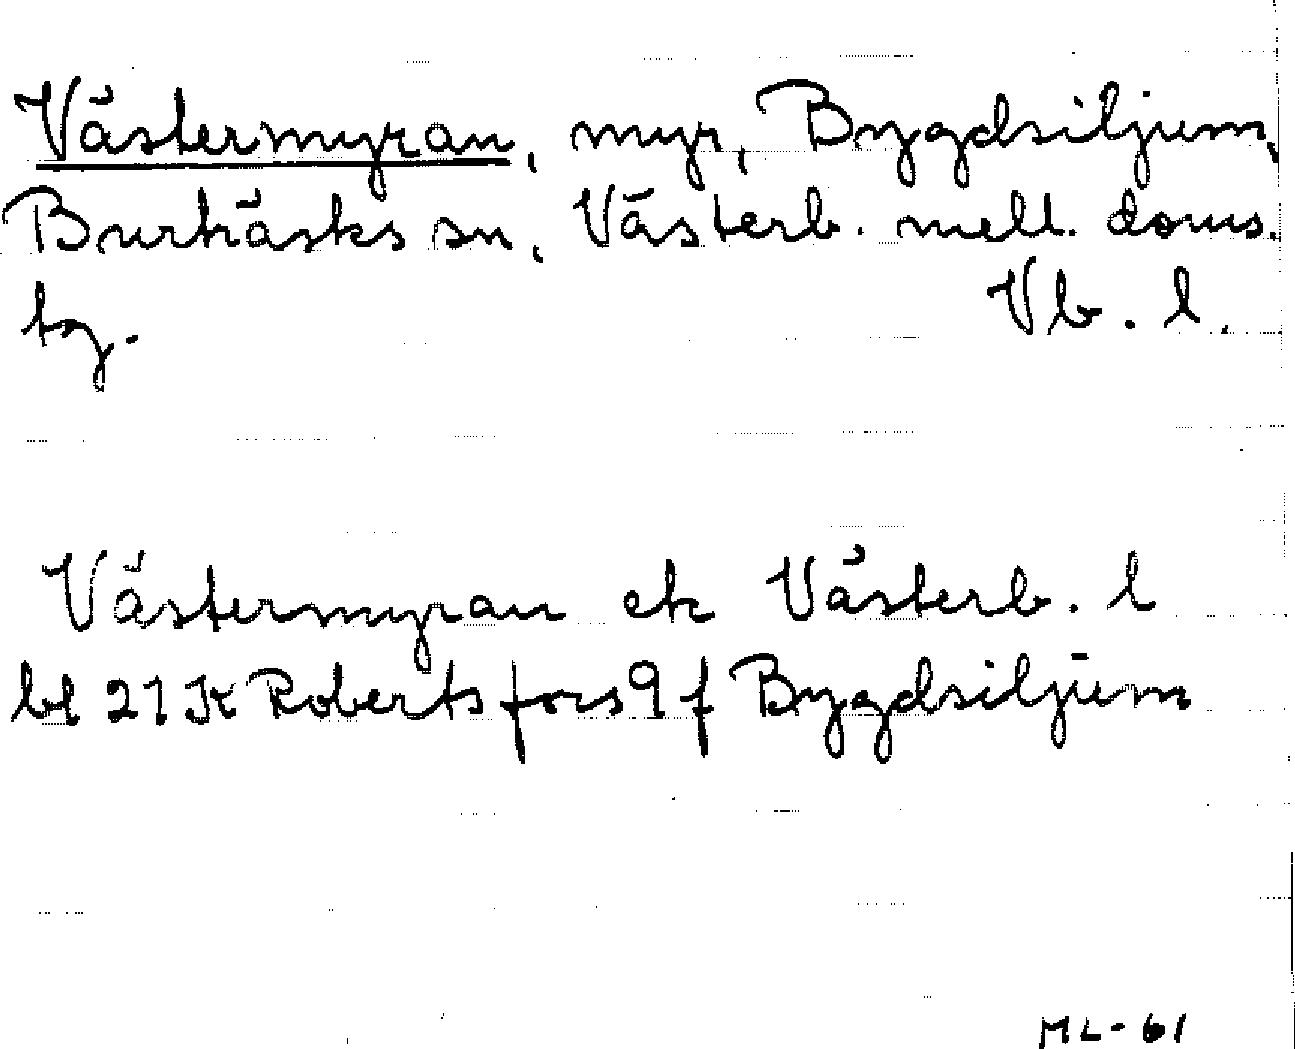 Västermyran, myr, Bygdsiljum,
Burträsks sn, Västerb. mell. doms.
tg. Vb. l.
Västermyran ek Västerb. l
bl 21 K Robertsfors 9 f Bygdsiljum
ML-61